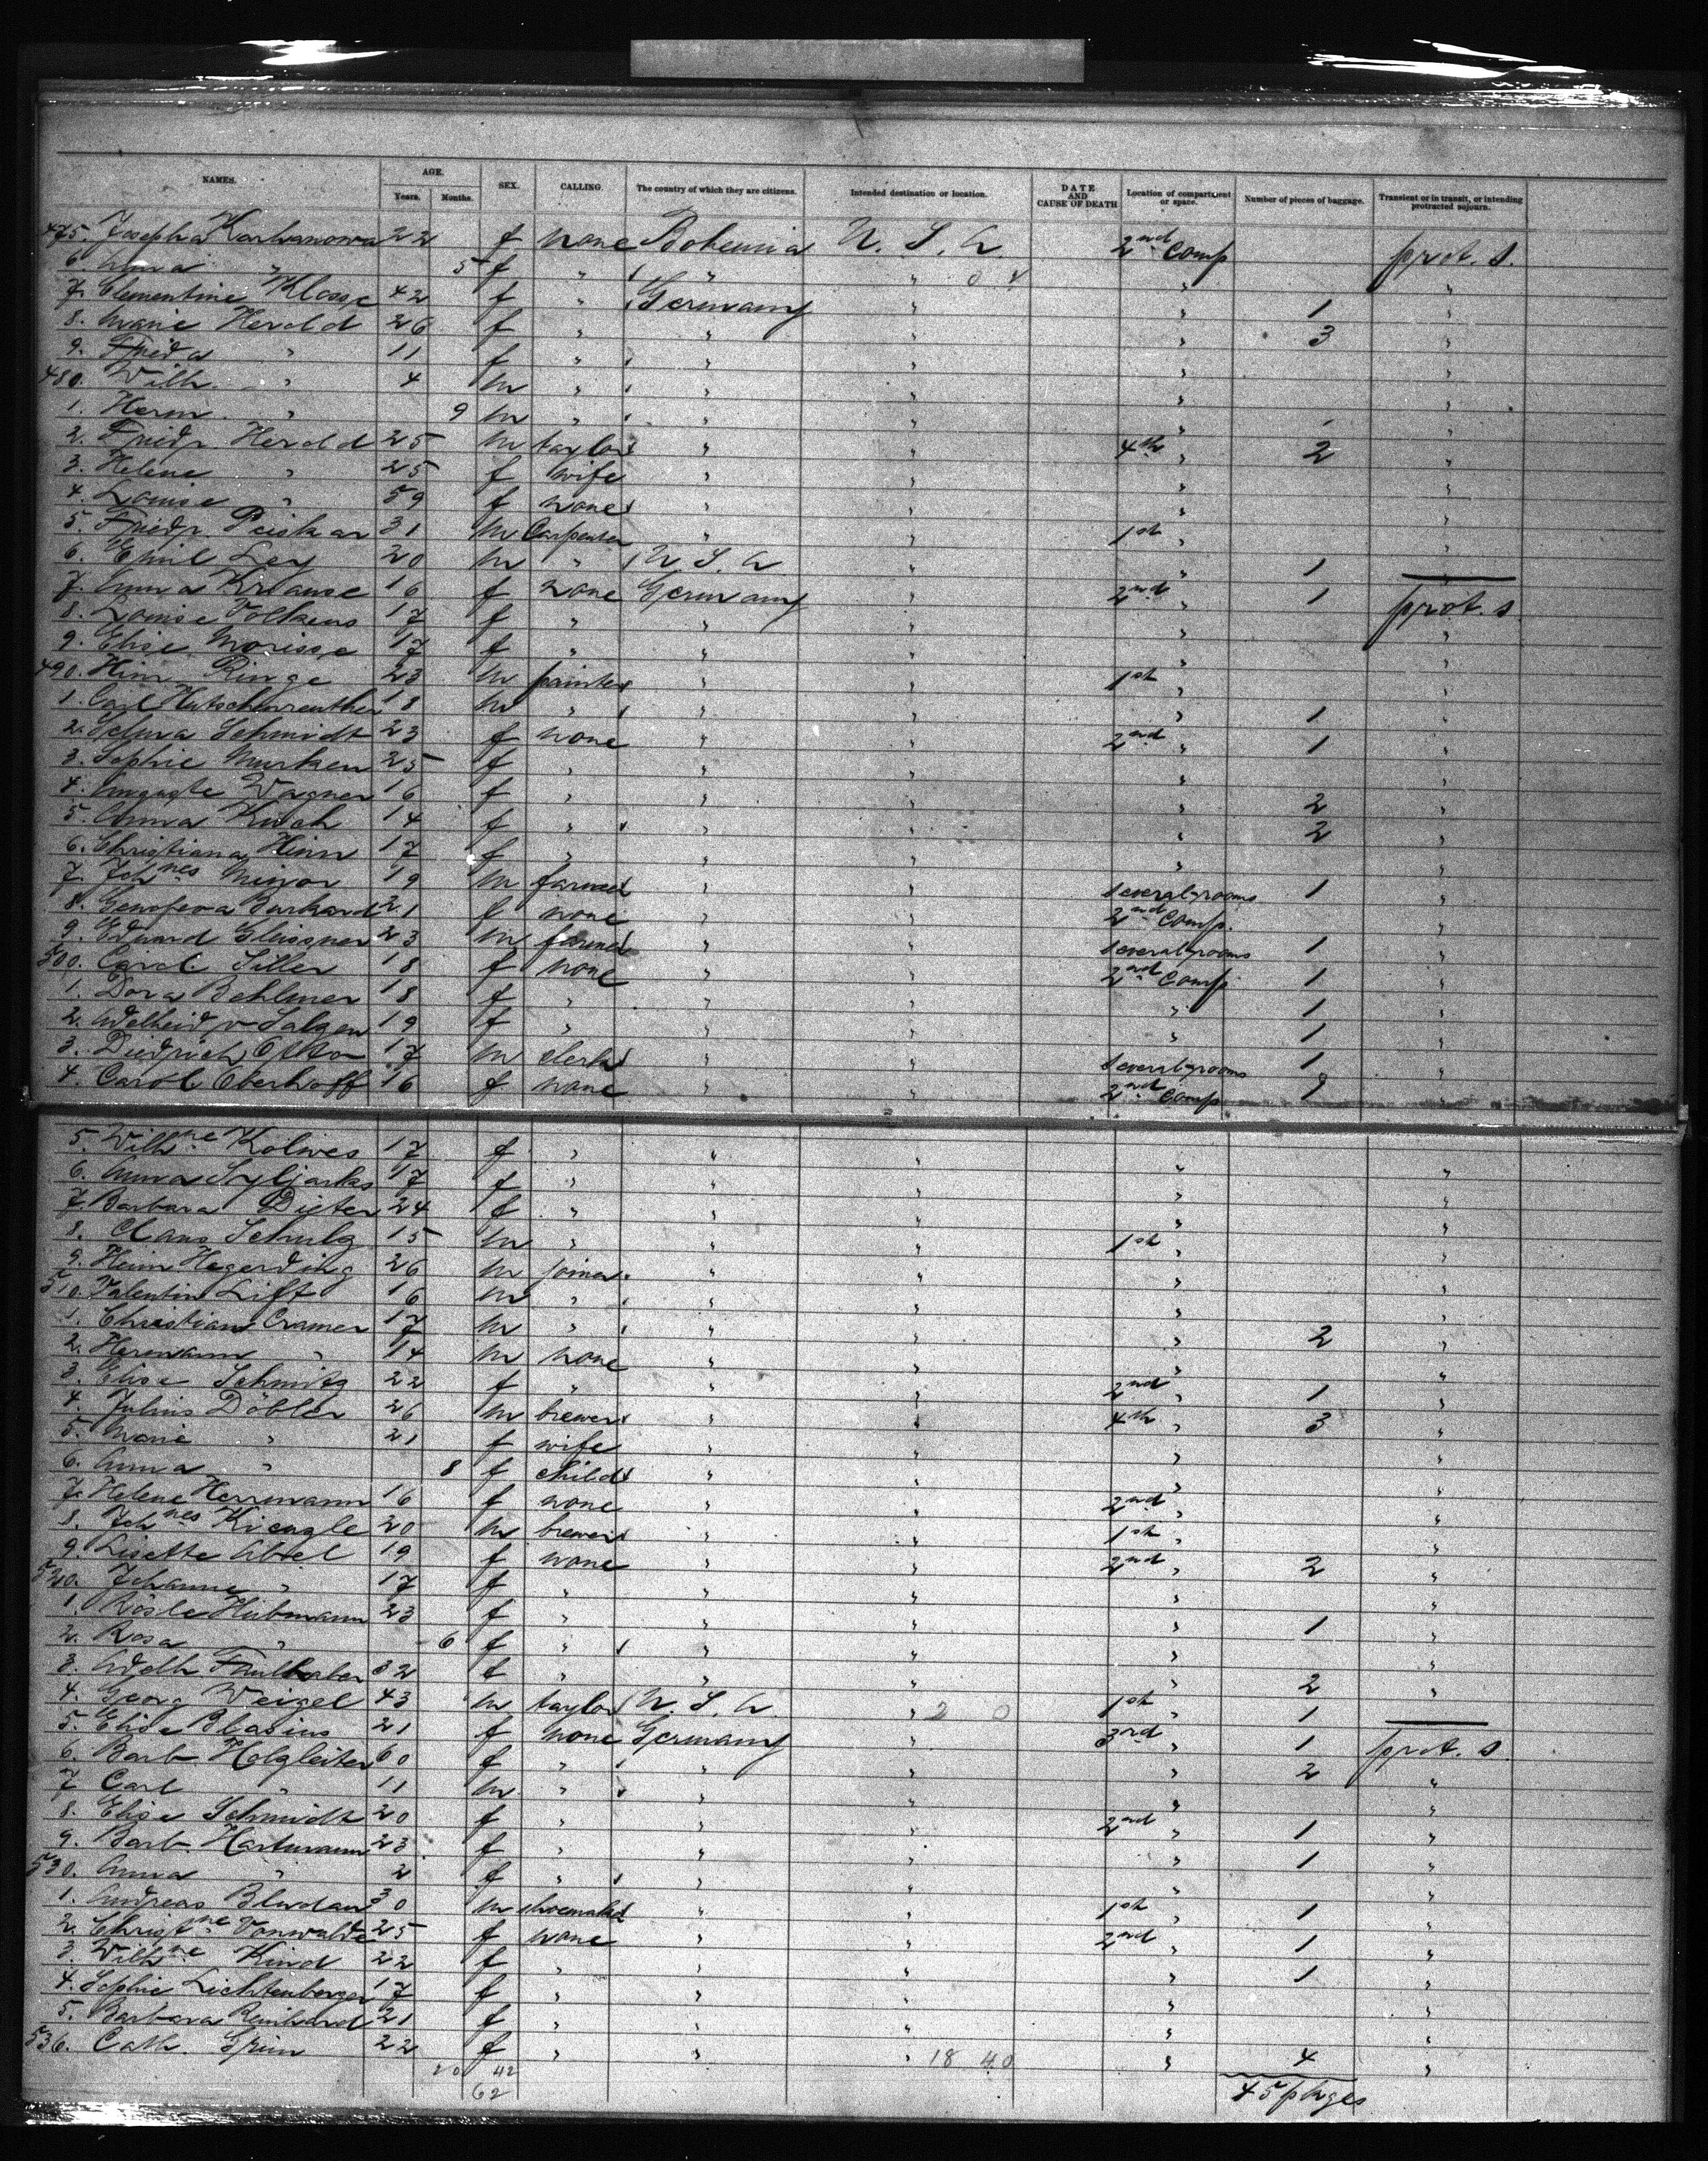 NAMES. AGE. SEX. CALLING. The country of which they are citizens. Intended destination or location. DATE AND CAUSE OF DEATH Location of compartment or space. Number of pieces of baggage. Transient or in transit, or intending protracted sojourn.
Years. Months.
475. Josepha Karbanowa 22 f none Bohemia U. S. A. 2nd Comp prot. s.
6. Anna " 5 f " " " " "
7. Clementine Klosse 42 f " Germany " " 1 "
8. Marie Herold 26 f " " " " 3 "
9. Frieda " 11 f " " " " "
480. Wilh. " 4 m " " " " "
1. Herm. " 9 m " " " " "
2. Friedr. Herold 25 m taylor " " 4th " 2 "
3. Helene " 25 f wife " " " "
4. Louise " 59 f none " " " "
5. Friedr. Peiskar 31 m Carpenter " " 1st " "
6. Emil Ley 20 m " U. S. A. " " 1 —
7. Anna Krause 16 f none Germany " 2nd " 1 prot. s
8. Louise Volkens 17 f " " " " "
9. Elise Morisse 17 f " " " " "
490. Hinr. Ringe 23 m painter " " 1st " "
1. Carl Hutschenreuther 18 m " " " " 1 "
2. Selma Schmidt 23 f none " " 2nd " 1 "
3. Sophie Murken 25 f " " " " "
4. Auguste Wagner 16 f " " " " 2 "
5. Anna Kuch 14 f " " " " 2 "
6. Christiana Hinn 17 f " " " " "
7. Johnes Minor 19 m farmer " " several rooms 1 "
8. Genofeva Burkard 21 f none " " 2nd Comp. "
9. Eduard Gleissner 23 m farmer " " several rooms 1 "
500. Carol. Siller 18 f none " " 2nd Comp 1 "
1. Dora Behlmer 18 f " " " " 1 "
2. Adelheid v Salzen 19 f " " " " 1 "
3. Diedrich Otten 17 m clerk " " several rooms 1 "
4. Carol. Eberhoff 16 f none " " 2nd Comp 1 "
5. Wilhne Kolwes 17 f " " " " "
6. Anna 17 f " " " " "
7 Barbara Dieter 24 f " " " " "
8. Claus Schulz 15 m " " " 1st " "
9. Heinr Hegerding 26 m joiner " " " "
510. Valentin Lift 16 m " " " " "
1. Christian Cramer 17 m " " " " 2 "
2. Hermann " 14 m none " " " "
3. Elise Schmitz 22 f " " " 2nd " 1 "
4. Julius Döbler 26 m brewer " " 4th " 3 "
5. Marie " 21 f wife " " " "
6. Anna " 8 f child " " " "
7. Helene Herrmann 16 f none " " 2nd " "
8. Johnes Kienzle 20 m brewer " " 1st " "
9. Lisette Abel 19 f none " " 2nd " 2 "
520. Johanne " 17 f " " " " "
1. Rösle Hubmann 23 f " " " " 1 "
2. Rosa " 6 f " " " " "
3. Adelh Faulhaber 32 f " " " " 2 "
4. Georg Weigel 43 m taylor U. S. A. " 2 0 1st " 1 —
5. Elise Blasius 21 f none Germany " 3rd " 1 prot. s.
6. Barb. Holzleiter 60 f " " " " 2 "
7 Carl " 11 m " " " " "
8. Elise Schmidt 20 f " " " 2nd " 1 "
9. Barb. Hartmann 23. f " " " " 1 "
530. Anna " 2 f " " " " "
1. Andreas Bludau 30 m shoemaker " " 1st " 1 "
2. Christne Vonwalde 25 f none " " 2nd " 1 "
3. Wilhne Kind 22 f " " " " 1 "
4. Sophie Lichtenberger 17 f " " " " "
5. Barbara Reinhard 21 f " " " " "
536. Cath. Grim 22 f " " " 18 40 " 4 "
20 42
62 45 pkges